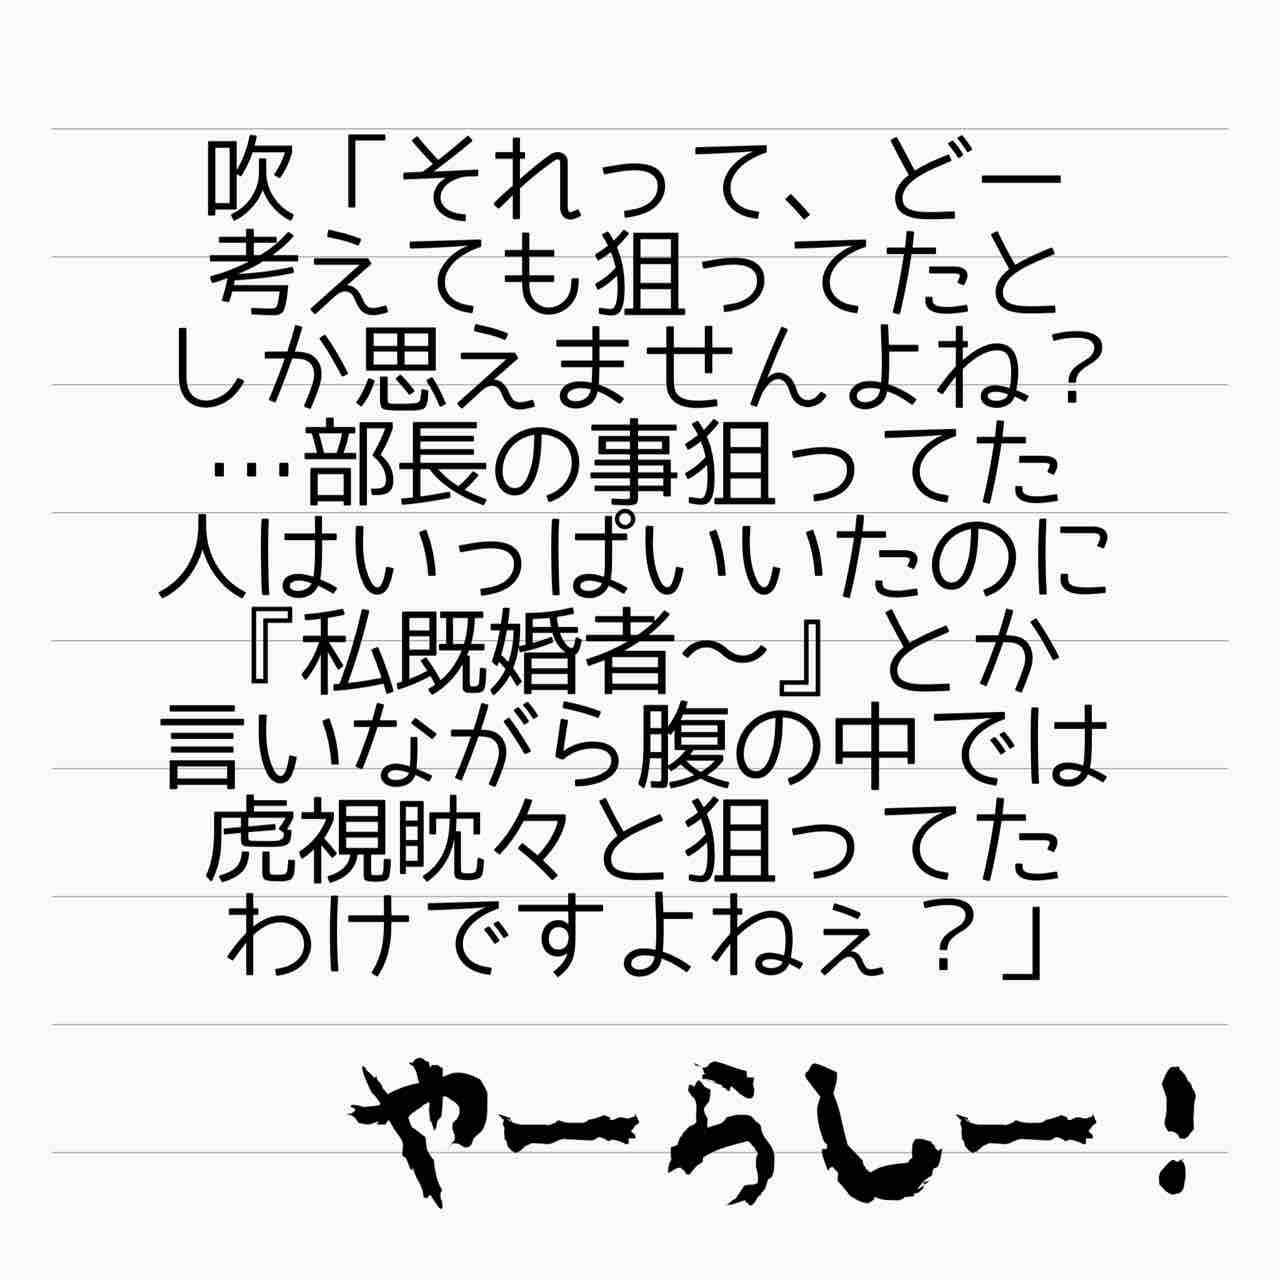 吹「それって、どー
考えても狙ってたと
しか思えませんよね？
…部長の事狙ってた
人はいっぱいいたのに
『私既婚者〜』とか
言いながら腹の中では
虎視眈々と狙ってた
わけですよねぇ？」
やーらしー！